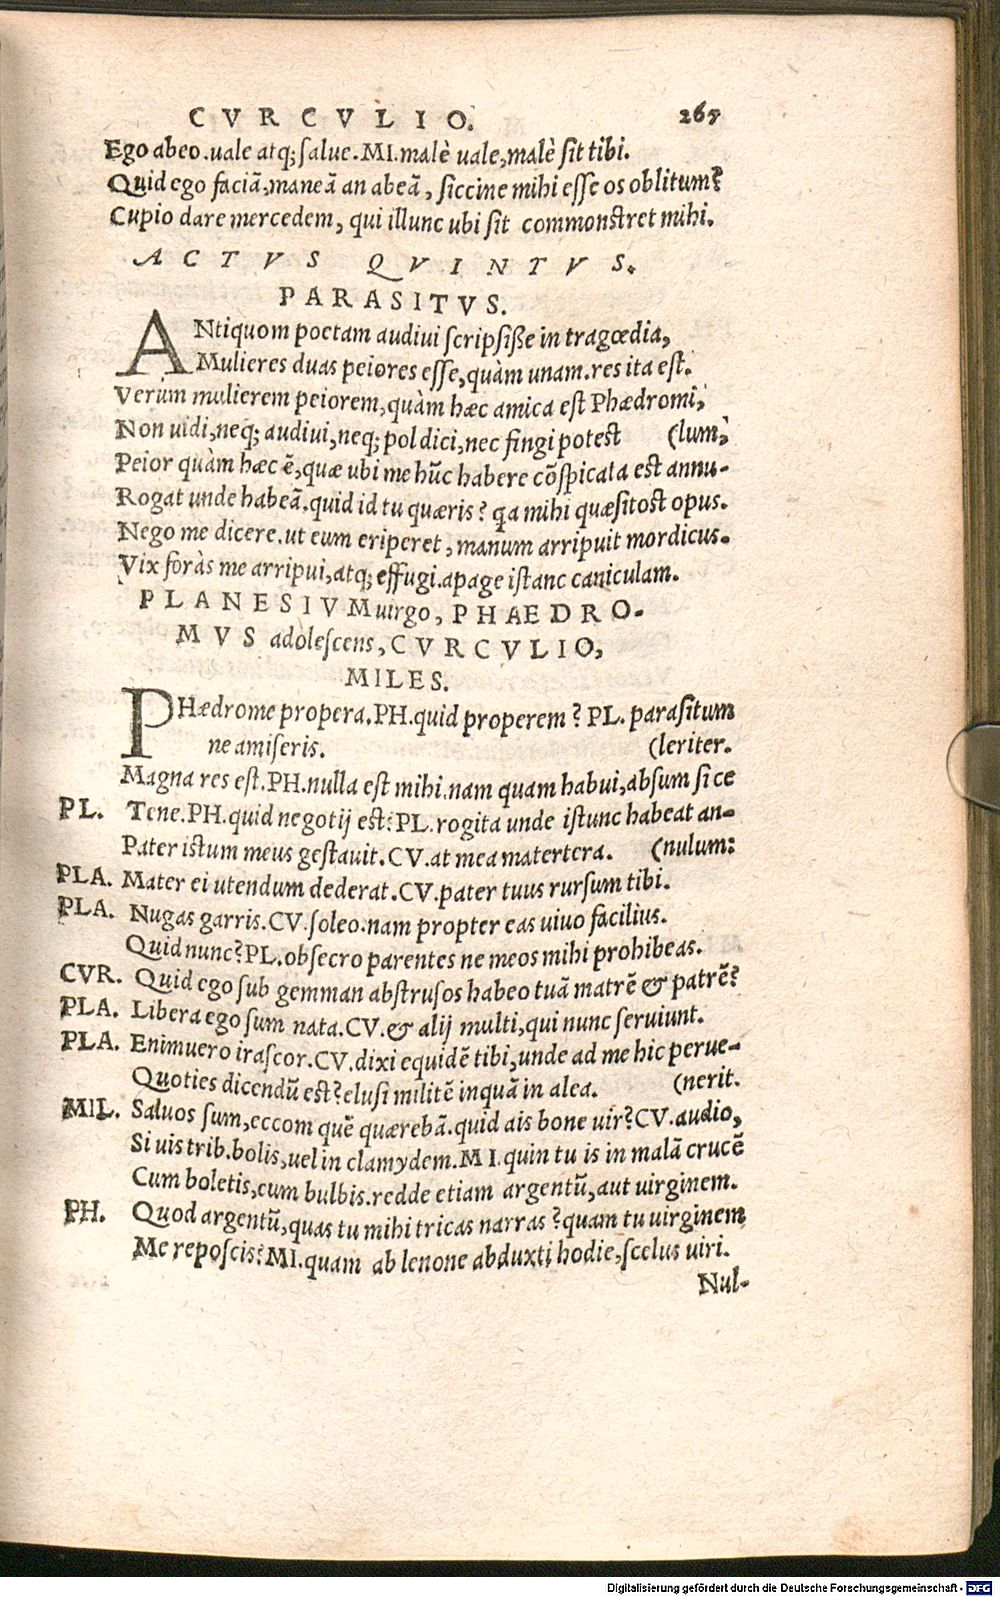 CVRCVLIO. 267
Ego abeo.uale atq; salue.MI.malè uale,malè sit tibi.
Quid ego faciā,maneā an abeā, siccine mihi esse os oblitum?
Cupio dare mercedem, qui illunc ubi sit commonstret mihi.
ACTVS QVINTVS.
PARASITVS.
ANtiquom poetam audiui scripsiße in tragœdia,
Mulieres duas peiores esse,quàm unam.res ita est.
Verùm mulierem peiorem,quàm hæc amica est Phædromi,
Non uidi,neq; audiui,neq; pol dici,nec fingi potest (lum,
Peior quàm hæc ē,quæ ubi me hūc habere cōspicata est annu-
Rogat unde habeā.quid id tu quæris? qa mihi quæsitost opus.
Nego me dicere.ut eum eriperet, manum arripuit mordicus.
Vix foràs me arripui,atq; effugi.apage istanc caniculam.
PLANESIVM uirgo, PHAEDRO-
MVS adolescens, CVRCVLIO,
MILES.
PHædrome propera.PH.quid properem? PL. parasitum
ne amiseris. (leriter.
Magna res est.PH.nulla est mihi.nam quam habui,absumsi ce
PL. Tene.PH.quid negotij est?PL.rogita unde istunc habeat an-
Pater istum meus gestauit.CV.at mea matertera. (nulum:
PLA. Mater ei utendum dederat.CV.pater tuus rursum tibi.
PLA. Nugas garris.CV.soleo.nam propter eas uiuo facilius.
Quid nunc?PL.obsecro parentes ne meos mihi prohibeas.
CVR. Quid ego sub gemman abstrusos habeo tuā matrē & patrē?
PLA. Libera ego sum nata.CV.& alij multi,qui nunc seruiunt.
PLA. Enimuero irascor.CV.dixi equidē tibi,unde ad me hic perue-
Quoties dicendū est?elusi militē inquā in alea. (nerit.
MIL. Saluos sum,eccom quē quærebā.quid ais bone uir?CV.audio,
Si uis trib.bolis,uel in clamydem.MI.quin tu is in malā crucē
Cum boletis,cum bulbis.redde etiam argentū,aut uirginem.
PH. Quod argentū,quas tu mihi tricas narras?quam tu uirginem
Me reposcis?MI.quam ab lenone abduxti hodie,scelus uiri.
Nul-
Digitalisierung gefördert durch die Deutsche Forschungsgemeinschaft - DFG